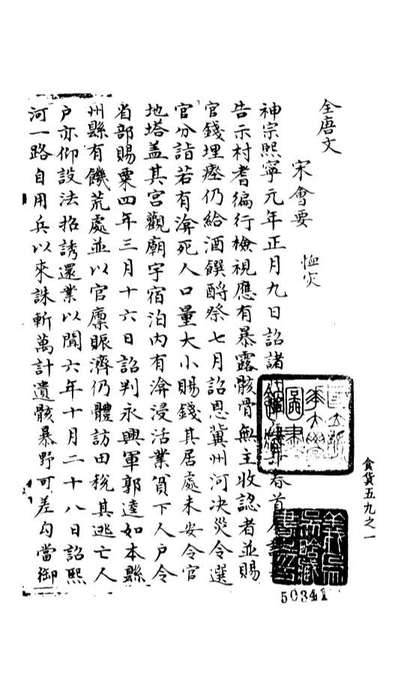 全唐文
宋會要 恤災
神宗熙寧元年正月九日詔諸春首
告示村耆徧行檢視應有暴露骸骨無主收認者並賜
官錢埋瘞仍給酒饌酹祭七月詔恩冀州河決災令選
官分詣若有渰死人口量大小賜錢其居處未安令官
地塔蓋其宮觀廟宇宿泊內有渰浸沽業貧下人戶令
省部賜粟四年三月十六日詔判永興軍郭逵如本縣
州縣有饑荒處並以官廩賑濟仍體訪田稅其逃亡人
戶亦仰設法招誘還業以聞六年十月二十八日詔熙
河一路自用兵以來誅斬萬計遺骸暴野可差勾當御
食貨五九之一
50341